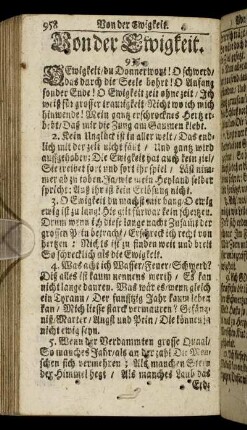 958 Von der Ewigkeit.
Von der Ewigkeit.
93.
O Ewigkeit/du Donnerwort! O schwerdt
das durch die Seele bohrt! O Anfang
sonder Ende! O Ewigkeit zeit ohne zeit/ Ich
weiß für grosser traurigkeit Nicht wo ich mich
hinwende! Mein gantz erschrocknes Hertz er-
bebt/Daß mir die Zung am Gaumen klebt.
2. Kein Unglück ist in aller welt/Das end-
lich mit der zeit nicht fält/ Und gantz wird
auffgehoben: Die Ewigkeit hat auch kein ziel/
Sie treibet fort und fort ihr spiel/ Läst nim-
mer ab zu toben/Ja/wie mein Heyland selber
spricht: Aus ihr ist kein Erlösung nicht.
3. O Ewigkeit du machst mir bang/O ewig
ewig ist zu lang! Hie gilt fürwar kein schertzen.
Drum wenn ich diese lange nacht Zusamt der
grossen Pein betracht/ Erschreck ich recht von
hertzen: Nichts ist zu finden weit und breit
So schrecklich als die Ewigkeit.
4. Was acht ich Wasser/Feuer/Schwerdt?
Dis alles ist kaum nennens werth/ Es kan
nicht lange dauren. Was wär es/wenn gleich
ein Tyrann/ Der funfftzig Jahr kaum leben
kan/ Mich liesse starck vermauren? Gefäng-
niß/Marter/Angst und Pein/ Die können ja
nicht ewig seyn.
5. Wenn der Verdammten grosse Quaal/
So manches Jahr/als an der zahl Die Men-
schen sich vermehren; Als manchen Stern
der Himmel hegt/ Als manches Laub das
Erd-